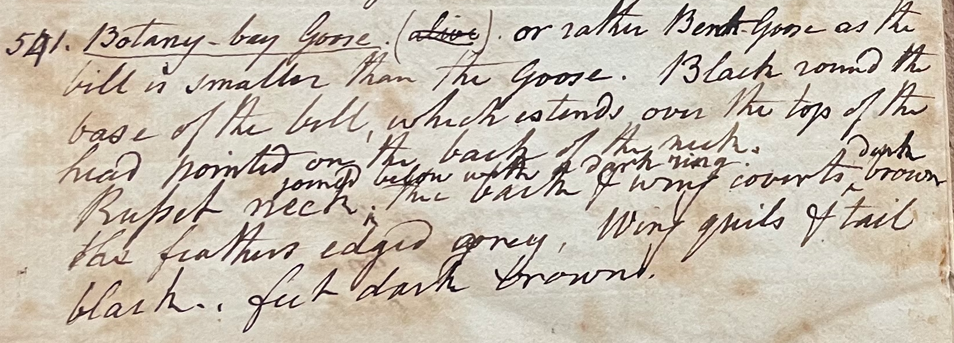 541. Botany-bay Goose. (alive). or rather Goose as the
bill is smaller than the Goose. Black round the
base of the bill, which extends over the top of the
head pointed on the back of the neck.
joined below with a dark ring. dark
Russet neck. The back & wing coverts brown
the feathers edged grey, Wing quils & tail
black.. feet dark brown.